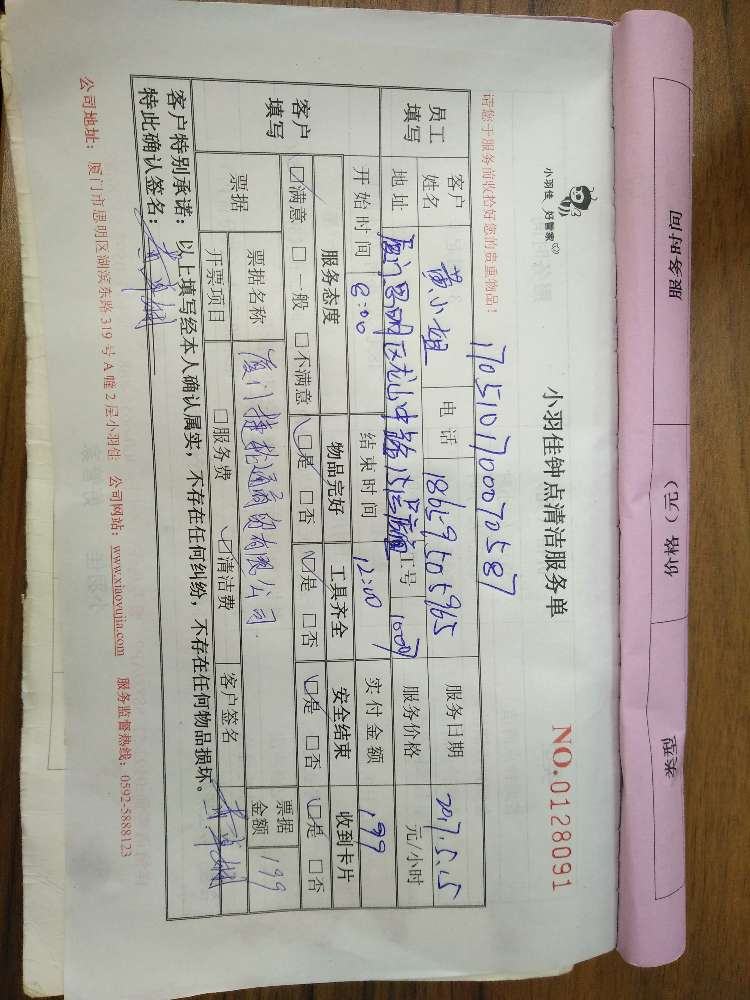 服务时间
价格（元）
类型
小羽佳 好管家
小羽佳钟点清洁服务单
NO.0128091
请您于服务前收拾好您的贵重物品！
1705101700070587
员工填写
客户姓名 黄小姐 电话 18659505965 服务日期 2017.5.15
地址 厦门思明区龙山中路 工号 1007 服务价格 元/小时
客户填写
开始时间 8:00 结束时间 12:00 实付金额 199
服务态度 物品完好 工具齐全 安全结束 收到卡片
☑满意 □一般 □不满意 ☑是 □否 ☑是 □否 ☑是 □否 ☑是 □否
票据 票据名称 厦门捷 通商贸有限公司 票据金额 199
开票项目 □服务费 ☑清洁费 客户签名
客户特别承诺：以上填写经本人确认属实，不存在任何纠纷，不存在任何物品损坏。
特此确认签名：
公司地址：厦门市思明区湖滨东路319号A幢2层小羽佳 公司网站：www.xiaoyujia.com 服务监督热线：0592-5888123